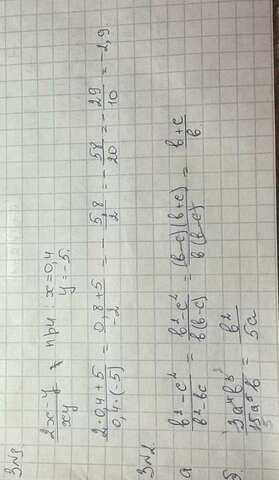 3 N3
2x-y/xy при: x=0,4
y=-5.
2·0,4+5/0,4·(-5) = 0,8+5/-2 = -5,8/2 = -58/20 = -29/10 = -2,9.
3 N2
а b²-c²/b²-bc = b²-c²/b(b-c) = (b-c)(b+c)/b(b-c) = b+c/b
б 3a⁴b³/15a⁵b = b²/5a